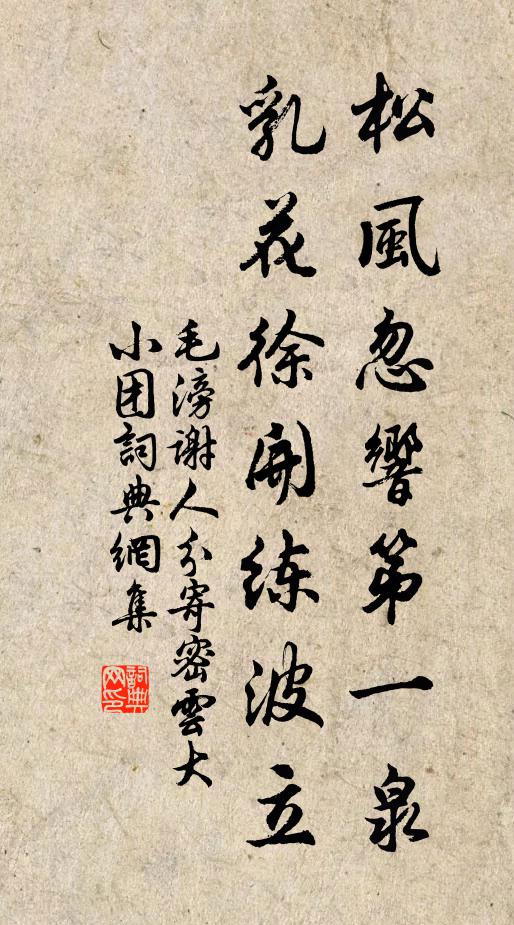 松風忽響第一泉
乳花徐開練波立
毛滂謝人分寄密雲大
小团詞典網集
詞典
网印